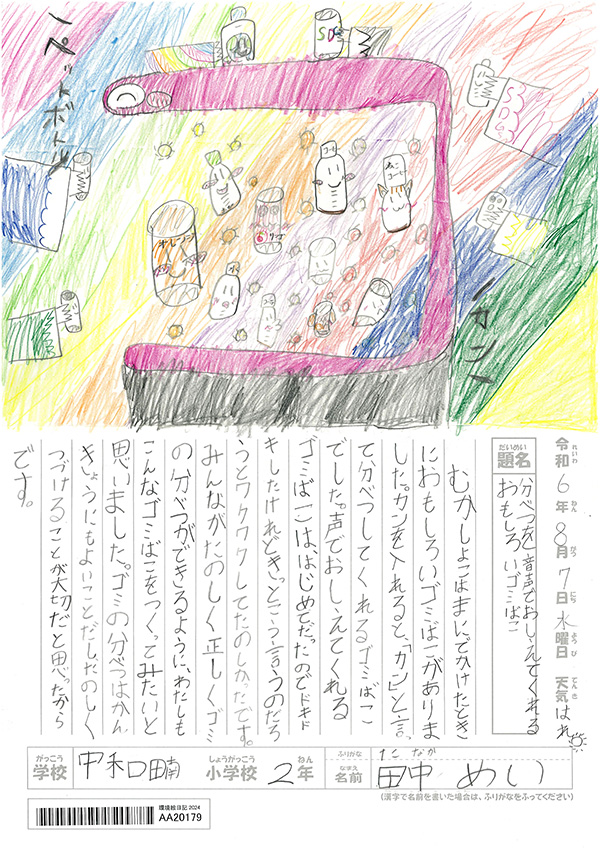 ペットボトル
SD
SDGs
オレンジ
カン
令和6年8月7日水曜日 天気はれ
れいわ ねん がつ にち ようび てんき
だいめい
題名
分べつを音声でおしえてくれる
おもしろいゴミばこ
むかしよこはまにでかけたとき
におもしろいゴミばこがありま
した。カンを入れると、「カン」と言っ
て分べつしてくれるゴミばこ
でした。声でおしえてくれる
ゴミばこは、はじめてだったのでドキド
キしたけれどきっとこう言うのだろ
うとワクワクしてたのしかったです。
みんながたのしく正しくゴミ
の分べつができるように、わたしも
こんなゴミばこをつくってみたいと
思いました。ゴミの分べつはかん
きょうにもよいことだし、たのしく
つづけることが大切だと思ったから
です。
がっこう しょうがっこう ねん ふりがな たなか
学校 中和田南 小学校 2年 なまえ 名前 田中 めい
(漢字で名前を書いた場合は、ふりがなをふってください)
環境絵日記2024
AA20179